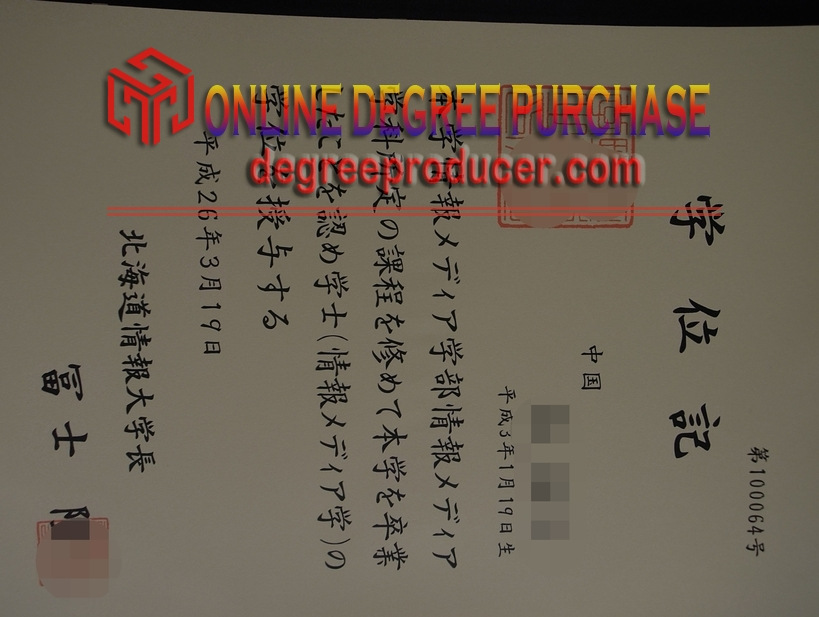 ONLINE DEGREE PURCHASE
degreeproducer.com
第100064号
学位記
中国
平成3年1月19日生
本学情報メディア学部情報メディア
学科所定の課程を修めて本学を卒業
したことを認め学士(情報メディア学)の
学位を授与する
平成26年3月19日
北海道情報大学長
富士